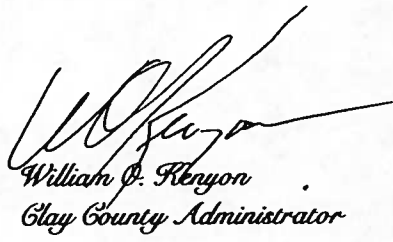 WOKenyon
William O. Kenyon
Clay County Administrator